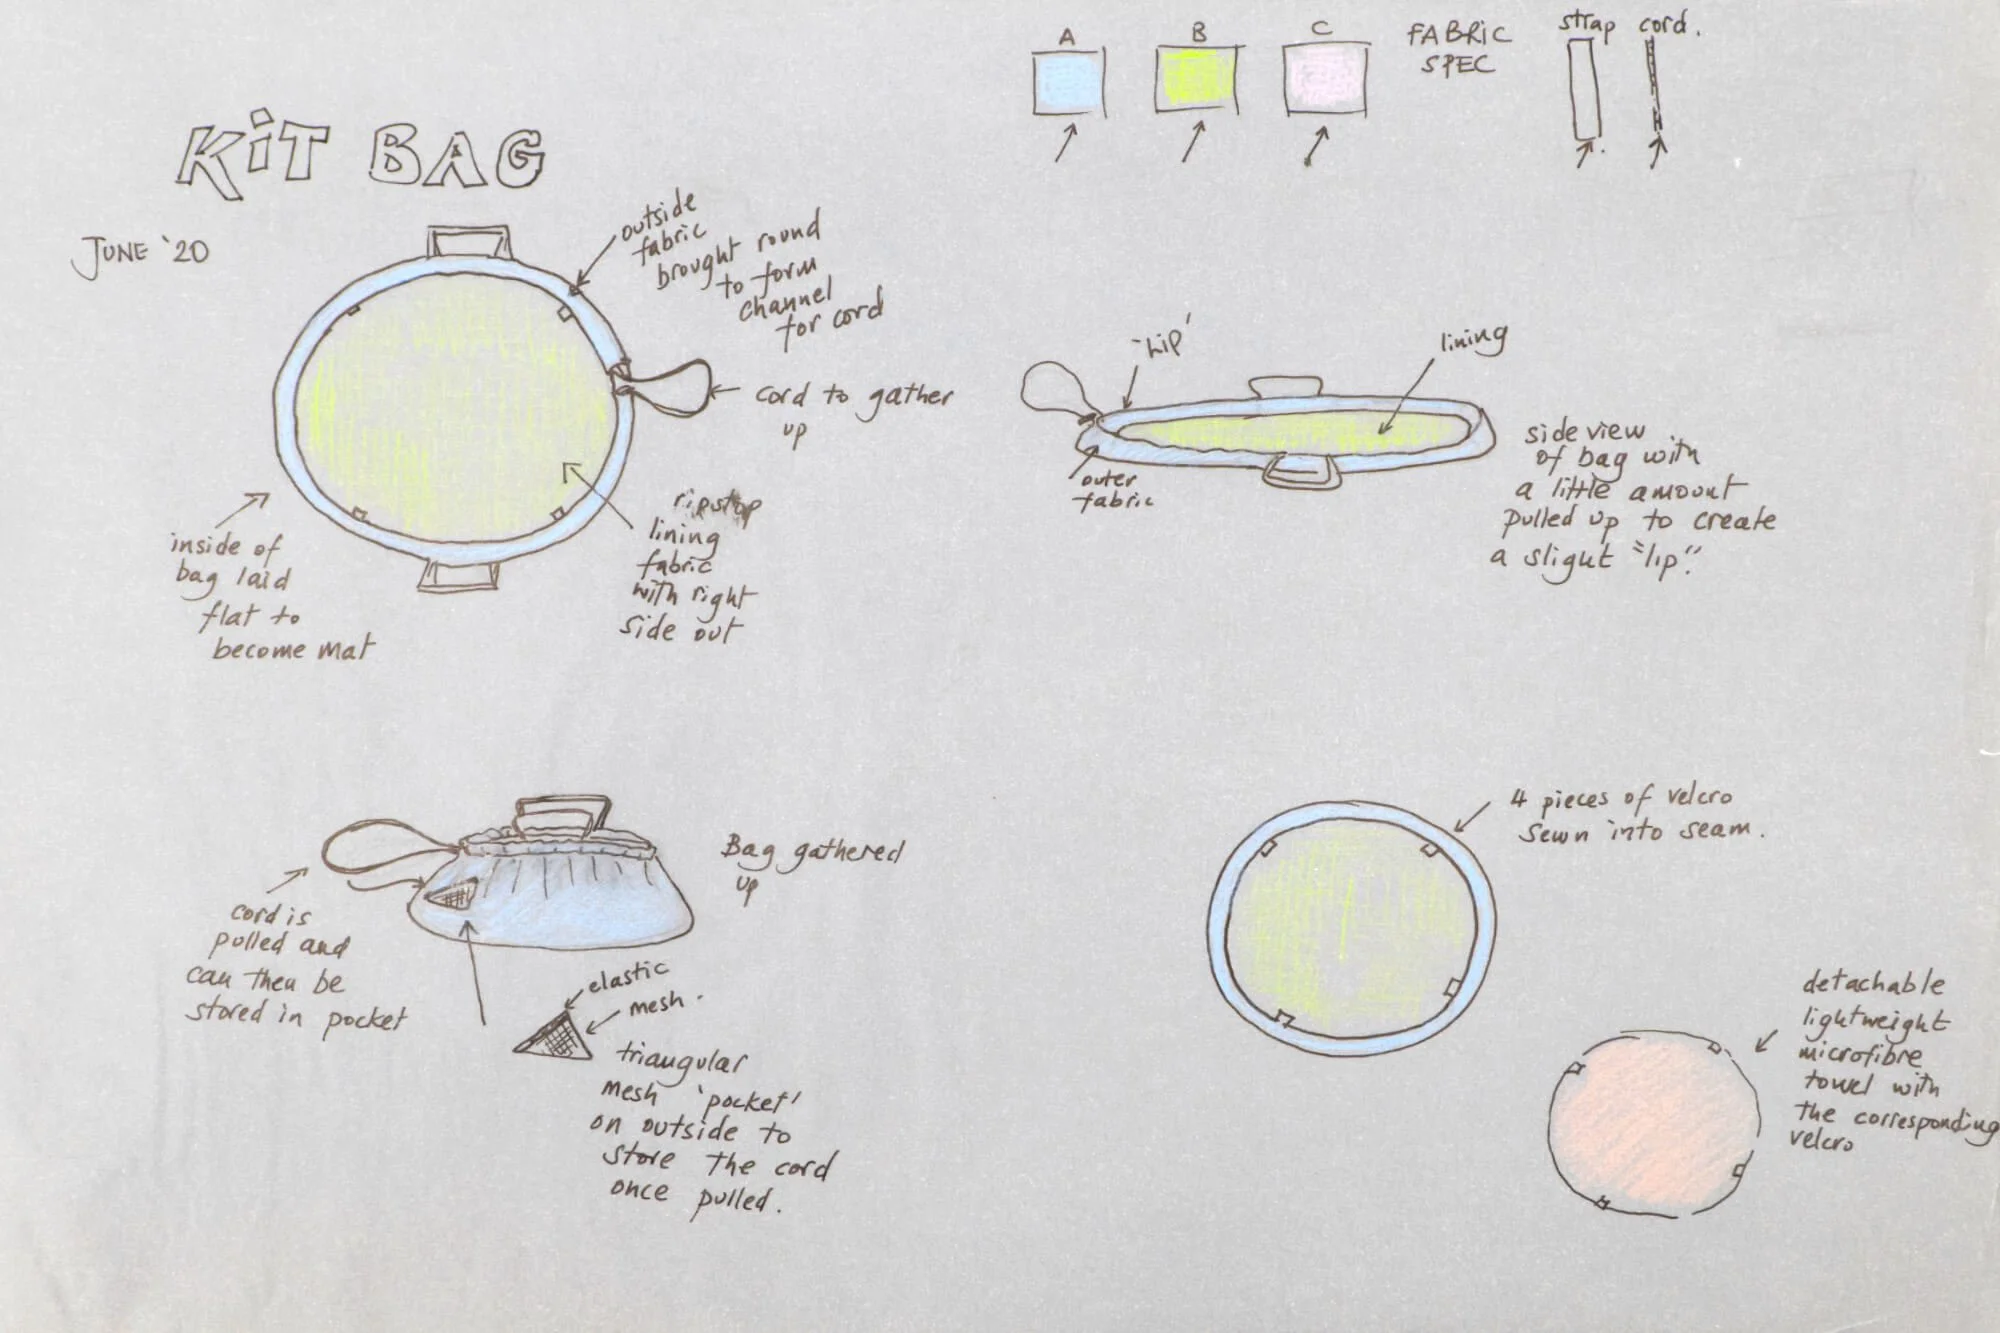 KiT BAG
JUNE '20
A
B
C
FABRIC
SPEC
strap
cord.
outside
fabric
brought round
to form
channel
for cord
cord to gather
up
ripstop
lining
fabric
with right
side out
inside of
bag laid
flat to
become mat
'Lip'
lining
outer
fabric
side view
of bag with
a little amount
pulled up to create
a slight "lip".
Bag gathered
up
cord is
pulled and
can then be
stored in pocket
elastic
mesh.
triangular
mesh 'pocket'
on outside to
store the cord
once pulled.
4 pieces of velcro
sewn into seam.
detachable
lightweight
microfibre
towel with
the corresponding
velcro